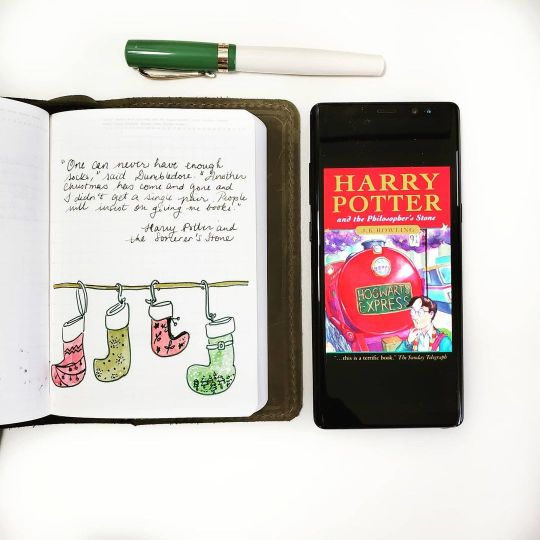 "One can never have enough
socks," said Dumbledore. "Another
Christmas has come and gone and
I didn't get a single pair. People
will insist on giving me books."
Harry Potter and
the Sorcerer's Stone
HARRY
POTTER
and the Philosopher's Stone
J.K. ROWLING
HOGWARTS
EXPRESS
"...this is a terrific book." The Sunday Telegraph